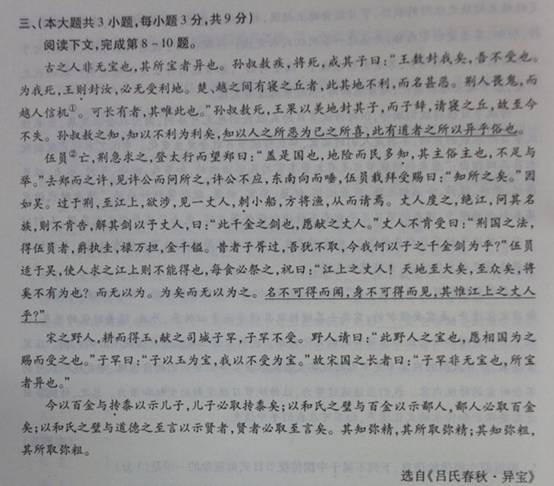 三、(本大题共3小题,每小题3分,共9分)
阅读下文,完成第8-10题。
古之人非无宝也,其所宝者异也。孙叔敖疾,将死,戒其子曰:“王数封我矣,吾不受也。
为我死,王则封汝,必无受利地。楚、越之间有寝之丘者,此其地不利,而名甚恶。荆人畏鬼,而
越人信机①。可长有者,其唯此也。”孙叔敖死,王果以美地封其子,而子辞,请寝之丘,故至今
不失。孙叔敖之知,知以不利为利矣,知以人之所恶为己之所喜,此有道者之所以异乎俗也。
伍员②亡,荆急求之,登太行而望郑曰:“盖是国也,地险而民多知,其主俗主也,不足与
举。”去郑而之许,见许公而问所之,许公不应,东南向而唾,伍员载拜受赐曰:“知所之矣。”因
如吴。过于荆,至江上,欲涉,见一丈人,刺小船,方将渔,从而请焉。丈人度之,绝江,问其名
族,则不肯告,解其剑以予丈人,曰:“此千金之剑也,愿献之丈人。”丈人不肯受曰:“荆国之法,
得伍员者,爵执圭,禄万担,金千镒。昔者子胥过,吾犹不取,今我何以子之千金剑为乎?”伍员
适于吴,使人求之江上则不能得也,每食必祭之,祝曰:“江上之丈人!天地至大矣,至众矣,将
奚不有为也?而无以为。为矣而无以为之。名不可得而闻,身不可得而见,其惟江上之丈人
乎?”
宋之野人,耕而得玉,献之司城子罕,子罕不受。野人请曰:“此野人之宝也,愿相国为之
赐而受之也。”子罕曰:“子以玉为宝,我以不受为宝。”故宋国之长者曰:“子罕非无宝也,所宝
者异也。”
今以百金与抟黍以示儿子,儿子必取抟黍矣;以和氏之璧与百金以示鄙人,鄙人必取百金
矣;以和氏之璧与道德之至言以示贤者,贤者必取至言矣。其知弥精,其所取弥精;其知弥粗,
其所取弥粗。
选自《吕氏春秋·异宝》